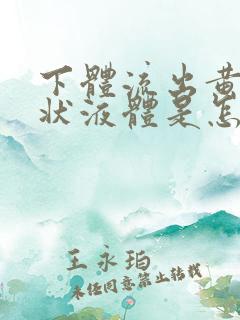 下體流出黄
狀液體是怎
王永珀
未经同意禁止转载